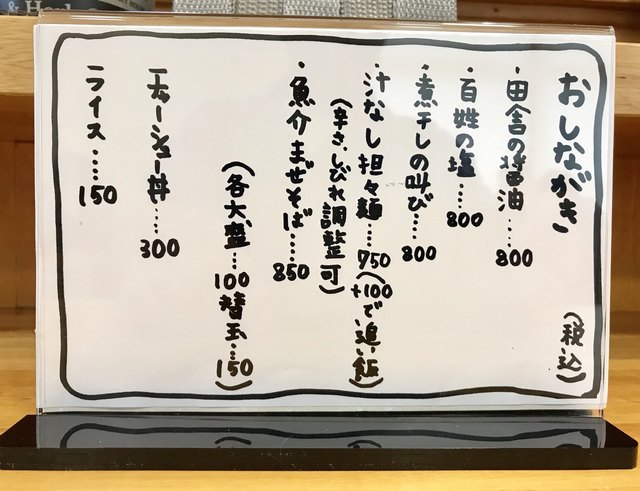 おしながき (税込)
・田舎の醤油……800
・百姓の塩……800
・煮干しの叫び……800
・汁なし担々麺……950(+100で追い飯)
(辛さ、しびれ調整可)
・魚介まぜそば……850
(各大盛…100 替玉……150)
・チャーシュー丼……300
・ライス……150